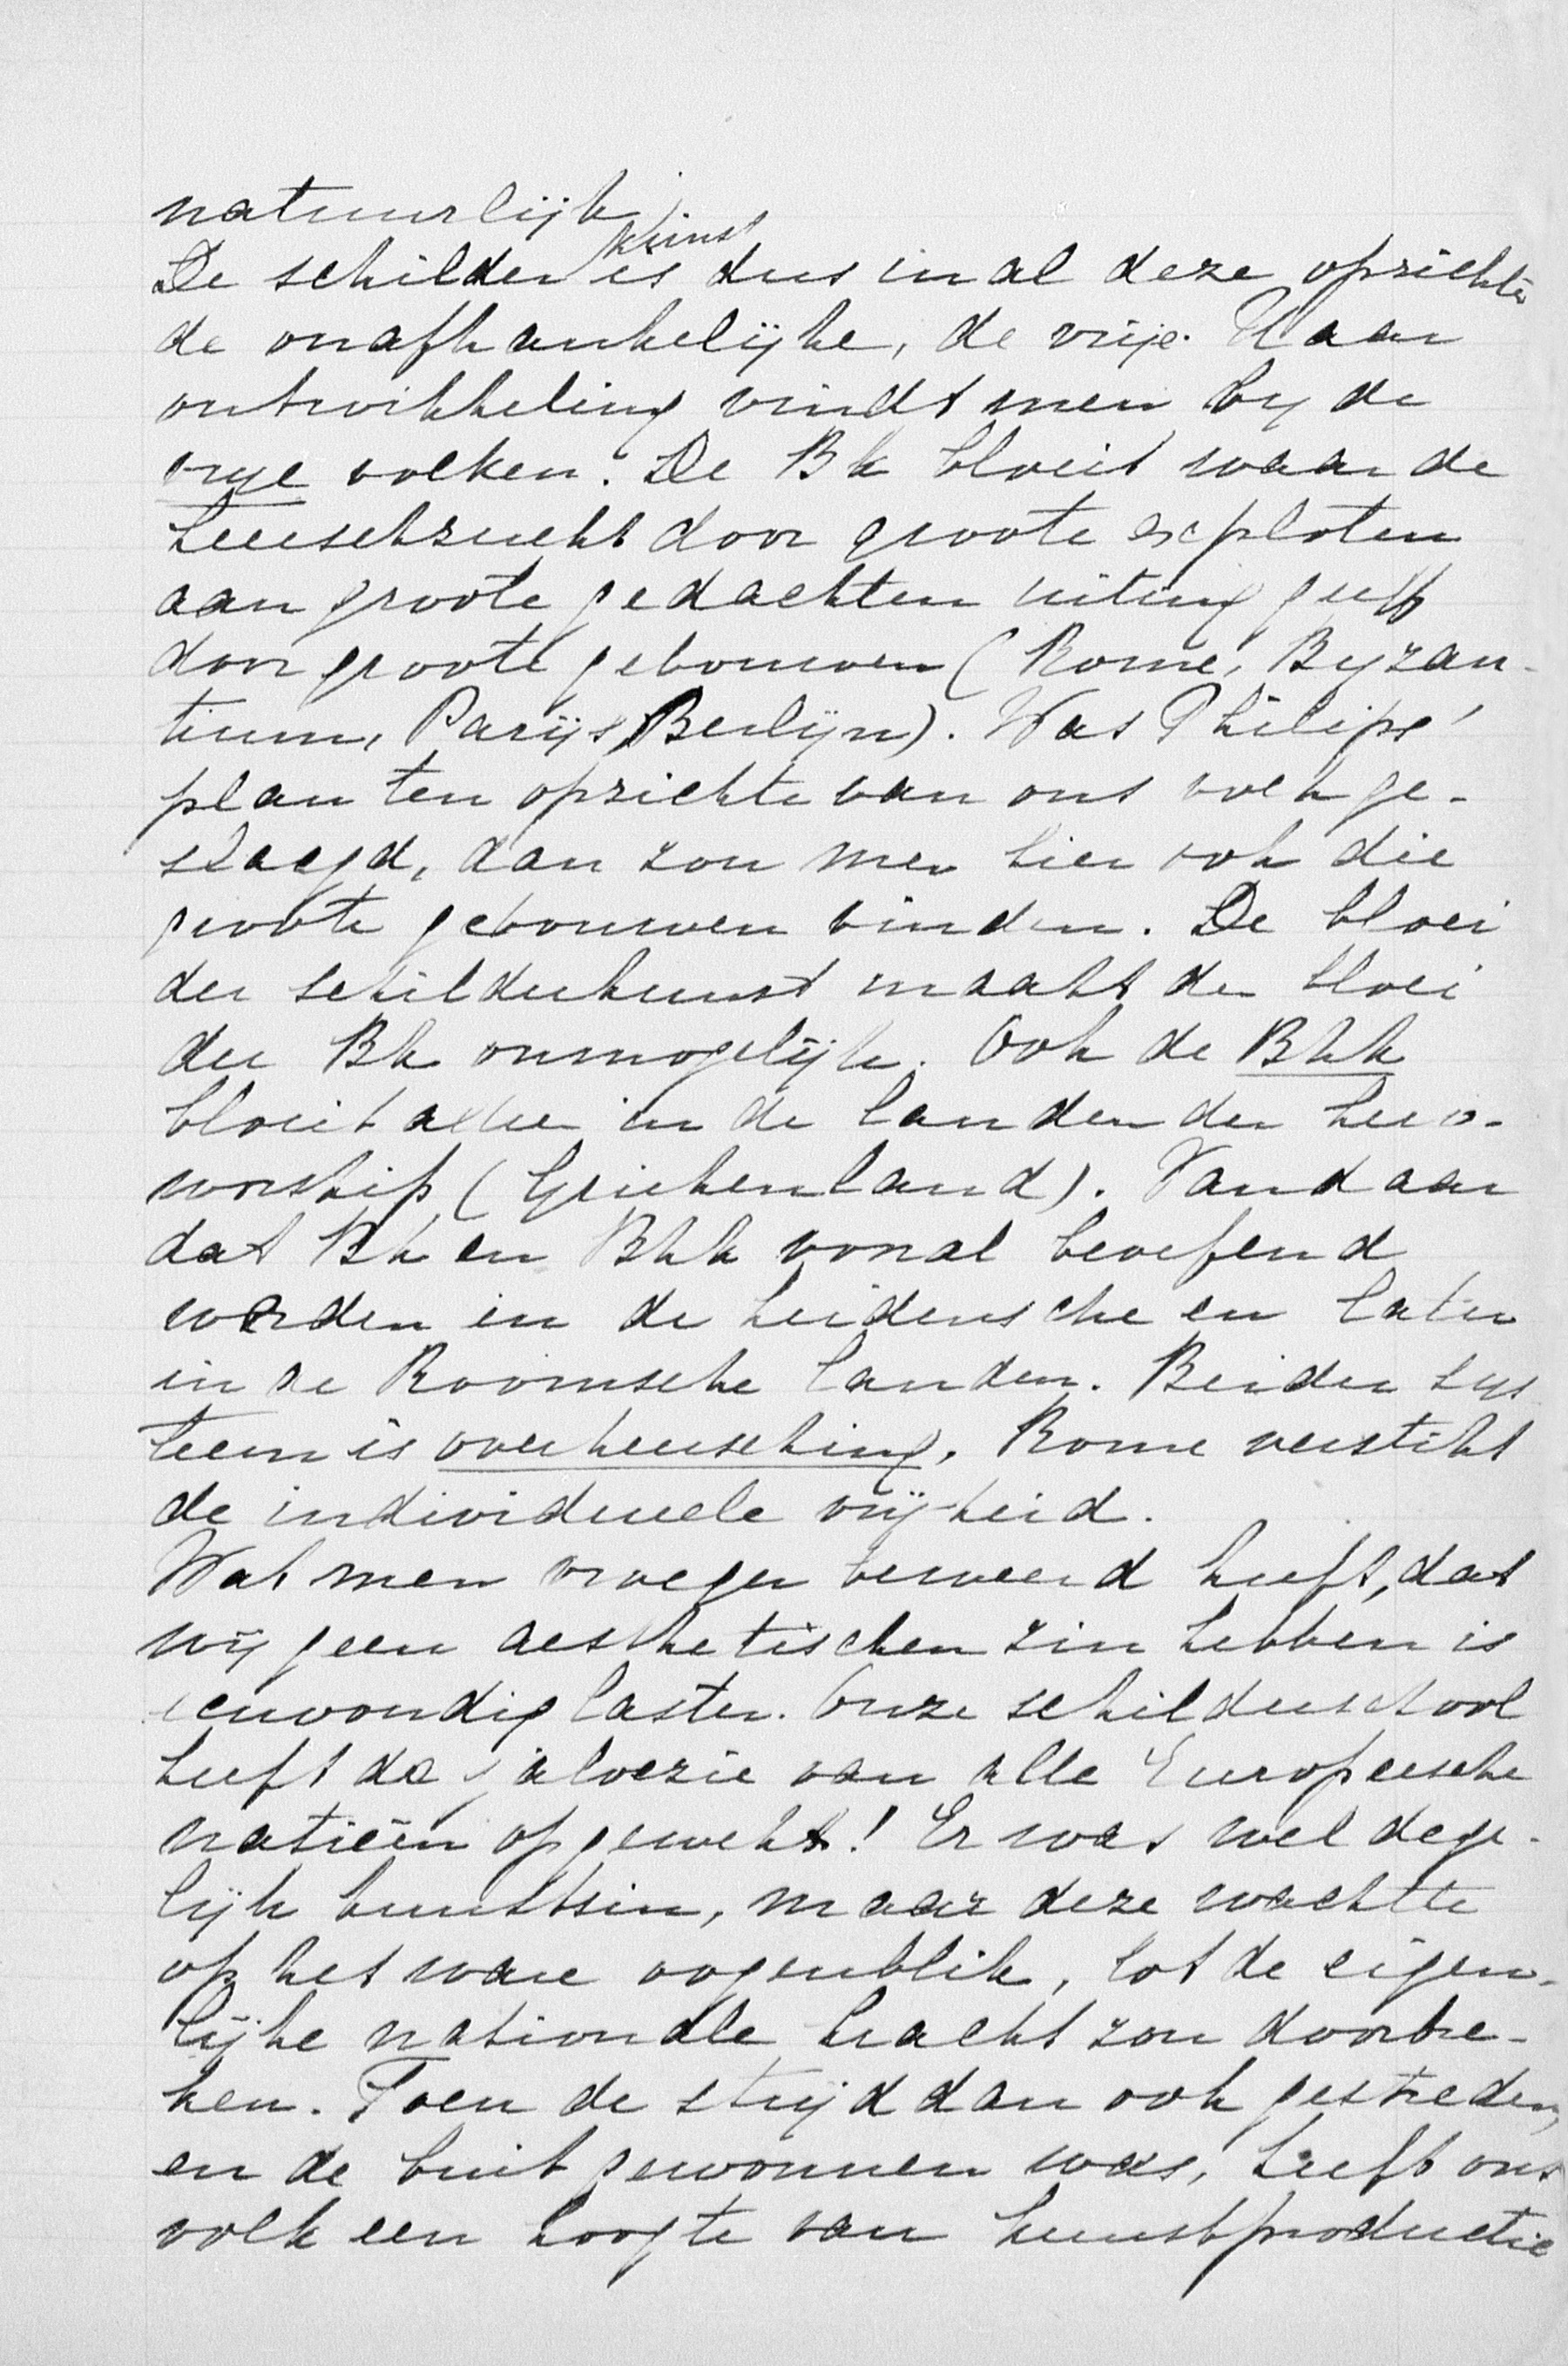 natuurlijk.
De schilderkunst is dus in al deze opzichte
de onafhankelijke, de vrije. Haar
ontwikkeling vindt men by de
vrye volken. De Bk bloeit waar de
heerschzucht door groote exploten
aan groote gedachten uiting geeft
door groote gebouwen (Rome, Byzan-
tium, Parijs, Berlijn). Was Philips'
plan ten opzichte van ons volk ge-
slaagd, dan zou men hier ook die
groote gebouwen vinden. De bloei
der schilderkunst maakt de bloei
der Bk onmogelijk. Ook de Bhk
bloeit alleen in de landen der hero-
worship (Griekenland). Vandaar
dat Bk en Bhk vooral beoefend
worden in de heidensche en later
in de Roomsche landen. Beider sys
teem is overheersching. Rome verstikt
de individueele vrijheid.
Wat men vroeger beweerd heeft, dat
wij geen aesthetischen zin hebben is
eenvoudig laster. Onze schilderschool
heeft de jaloezie van alle Europeesche
natiën opgewekt! Er was wel dege-
lijk kunstzin, maar deze wachtte
op het ware oogenblik, tot de eigen-
lijke nationale kracht zou doorbre-
ken. Toen de strijd dan ook gestreden,
en de buit gewonnen was, heeft ons
volk een hoogte van kunstproductie